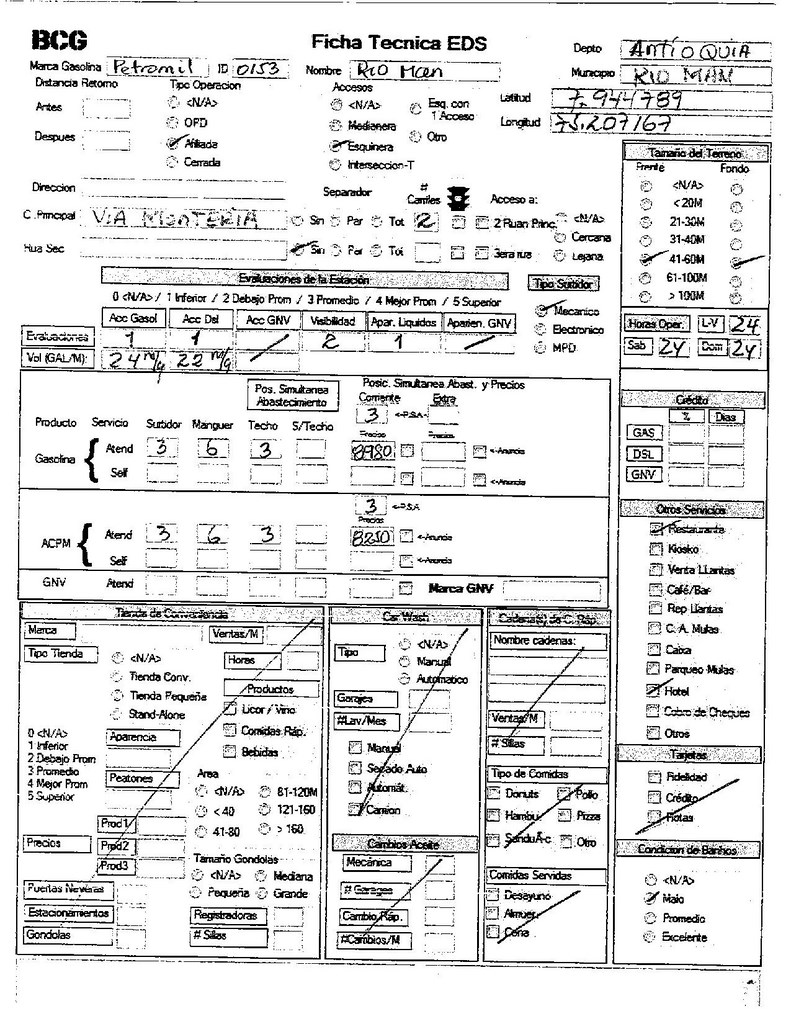 BCG
Ficha Tecnica EDS
Depto ANTIOQUIA
Marca Gasolina Petromil ID 0153 Nombre RIO Man
Municipio RIO MAN
Distancia Retorno Tipo Operacion Accesos
Latitud 7.944789
Longitud 75.207167
Antes
Despues
<N/A>
OPD
Afiliada
Cerrada
<N/A>
Medianera
Esquinera
Interseccion-T
Esq. con 1 Acceso
Otro
Tamaño del Terreno
Frente Fondo
<N/A>
< 20M
21-30M
31-40M
41-60M
61-100M
> 100M
Direccion
Separador # Carriles Acceso a:
C .Principal VIA MonTERIA Sin Par Tot 2 2 Ruan Princ.
Rua Sec Sin Par Tot 3era rua
<N/A>
Cercana
Lejana
Evaluaciones de la Estación
0 <N/A> / 1 Inferior / 2 Debajo Prom / 3 Promedio / 4 Mejor Prom / 5 Superior
Acc Gasol Acc Dsl Acc GNV Visibilidad Apar. Liquidos Aparien. GNV
Evaluaciones 1 1 2 1
Vol (GAL/M): 24 m/g 22 m/g
Tipo Surtidor
Mecanico
Electronico
MPD
Horas Oper. L-V 24
Sab 24 Dom 24
Pos. Simultanea Abastecimiento
Posic. Simultanea Abast. y Precios
Corriente Extra
3 <-P.S.A-
Producto Servicio Surtidor Manguer Techo S/Techo Precios Precios
Gasolina Atend 3 6 3 8980 <-Anuncia
Self <-Anuncia
3 <-P.S.A
Precios
ACPM Atend 3 6 3 8250 <-Anuncia
Self <-Anuncia
GNV Atend Marca GNV
Crédito
% Dias
GAS
DSL
GNV
Otros Servicios
Restaurante
Kiosko
Venta LLantas
Café/Bar
Rep Llantas
C. A. Mulas
Caixa
Parqueo Mulas
Hotel
Cobro de Cheques
Otros
Tienda de Conveniencia
Marca Ventas/M
Tipo Tienda
<N/A>
Tienda Conv.
Tienda Pequeña
Stand-Alone
Horas
Productos
Licor / Vino
Comidas Ráp.
Bebidas
0 <N/A>
1 Inferior
2 Debajo Prom
3 Promedio
4 Mejor Prom
5 Superior
Aparencia
Peatones
Area
<N/A> 81-120M
< 40 121-160
41-80 > 160
Precios
Prod1
Prod2
Prod3
Tamaño Gondolas
<N/A> Mediana
Pequeña Grande
Puertas Neveras
Estacionamientos
Gondolas
Registradoras
# Sillas
Car Wash
Tipo
<N/A>
Manual
Automatico
Garajes
#Lav/Mes
Manual
Secado Auto
Automát.
Camion
Cambios Aceite
Mecánica
# Garages
Cambio Ráp.
#Cambios/M
Cadena(s) de C. Ráp.
Nombre cadenas:
Ventas/M
# Sillas
Tipo de Comidas
Donuts Pollo
Hambu. Pizza
SanduÃ-c Otro
Comidas Servidas
Desayuno
Almuer.
Cena
Tarjetas
Fidelidad
Crédito
Flotas
Condicion de Banhos
<N/A>
Malo
Promedio
Excelente